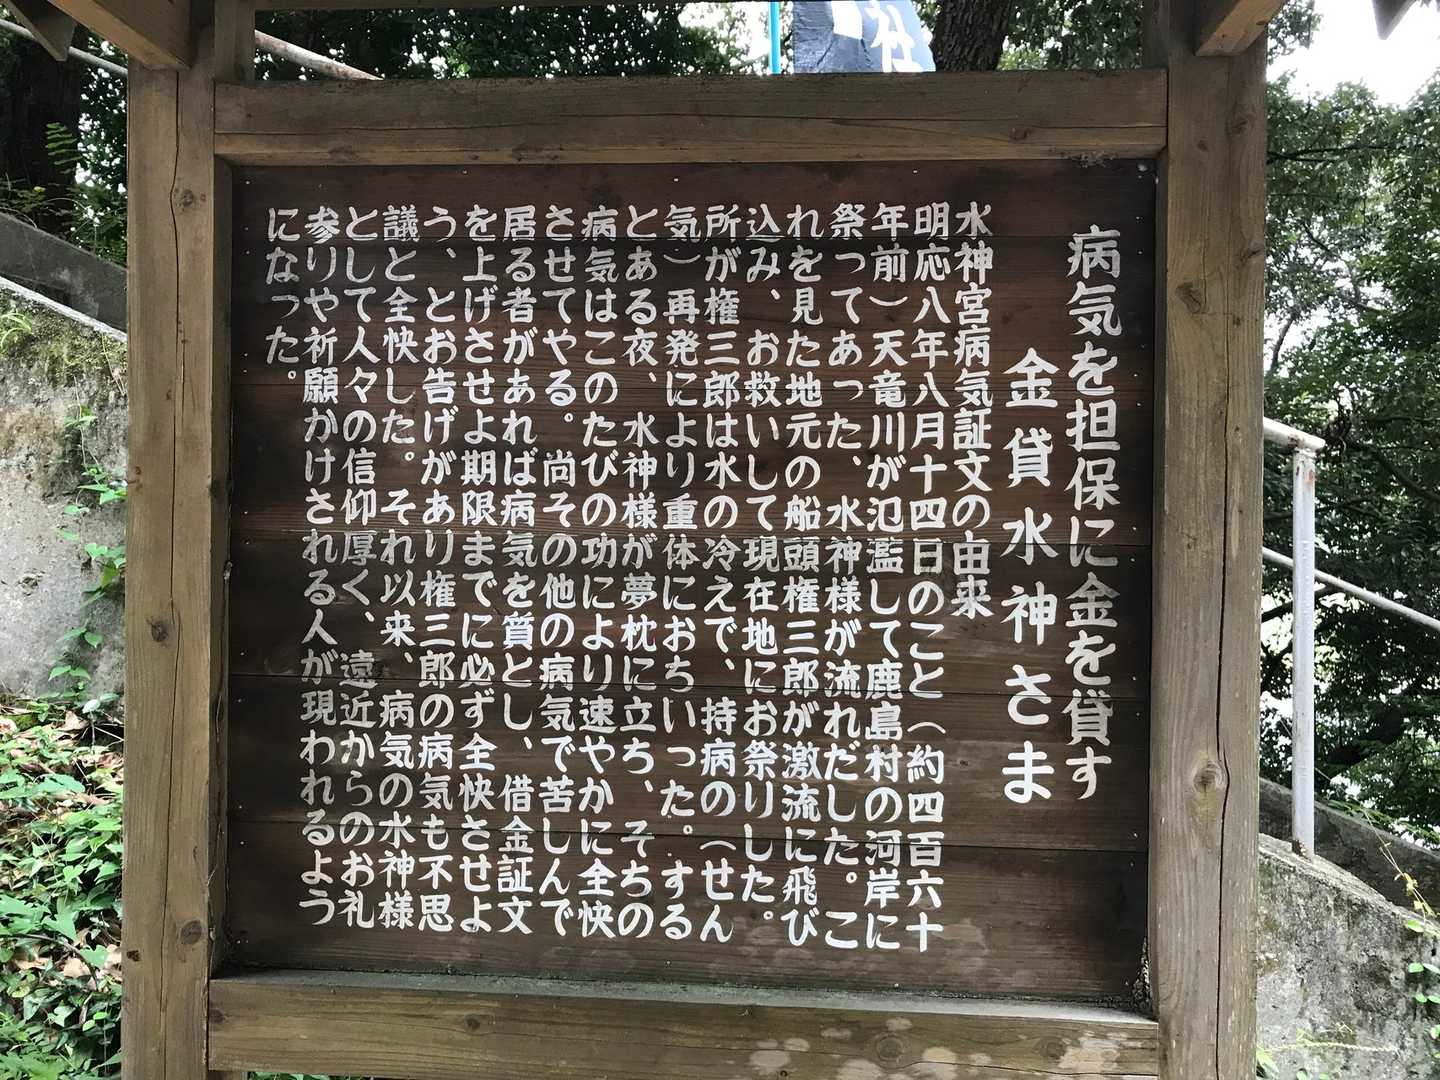 社
病気を担保に金を貸す
金貸水神さま
水神宮病気証文の由来
明応八年八月十四日のこと（約四百六十
年前）天竜川が氾濫して鹿島村の河岸に
祭ってあった、水神様が流れだした。こ
れを見た地元の船頭権三郎が激流に飛び
込み、お救いして現在地にお祭りした。
所が権三郎は水の冷えで、持病の（せん
気）再発により重体におちいった。する
とある夜、水神様が夢枕に立ち、そちの
病気はこのたびの功により速やかに全快
させてやる。尚その他の病気で苦しんで
居る者があれば病気を質とし、借金証文
を上げさせよ期限までに必ず全快させよ
う、とお告げがあり権三郎の病気も不思
議と全快した。それ以来、病気の水神様
として人々の信仰厚く、遠近からのお礼
参りや祈願かけされる人が現われるよう
になった。